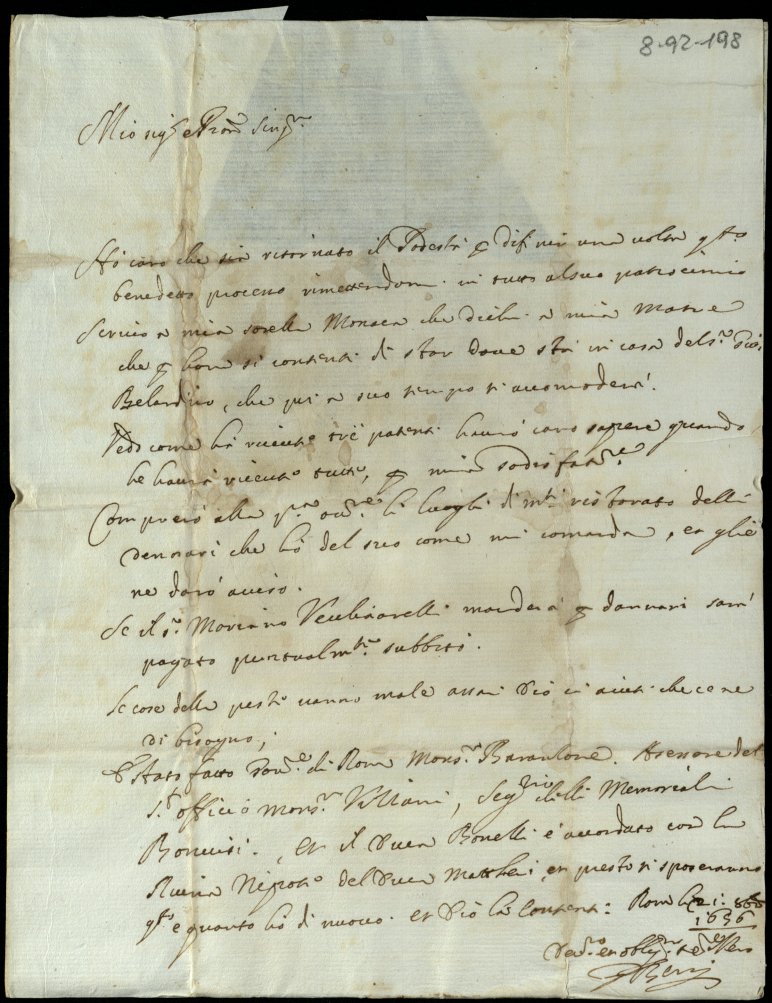 8-92-198
Mio sig.r e Pron. Sing.re
Hó caro che sia ritornato il Podestà p difinir una volta q.sto
benedetto processo rimettendomi in tutto al suo patrocinio
Scrivo a mia sorella Monaca che dichi a mia Matre
che p hora si contenti di star dove stà in casa del s.r Gio:
Belardino, che poi a suo tempo si accomoderà.
Vedo come hà riceuto trè patenti haurò caro sapere quando
he haurà riceuto tutte, p mia sodisfat.ne
Comprerò alla p.ma occ.ne li luoghi di m.ti ristorato delli
denarari che hò del suo come mi comanda, et gliè
ne darò aviso.
Se il s.r Mariano Vecchiarelli manderà p dannari sarà
pagato puntualm.te subbito.
Le cose della peste vanno male assai Dio ci aiuti che ce ne
di bisogno,
È stato fatto Gov.re di Roma Mons.r Baranzone. Assessore del
S.t officio mons.r Vittani, Seg.rio delli Memoriali
Bonvisi. et il Duca Bonelli è accordato con la
Nepote del Duca Matthei, et presto si sposeranno
q.to è quanto hò di nuovo. et Dio la Contenti: Roma li 21:
1656
Dev.mo et oblig.mo Ser.re Vero